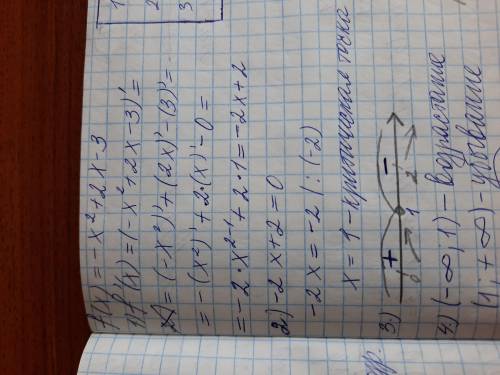 f(x) = -x²+2x-3
1) f'(x) = (-x²+2x-3)' =
= (-x²)'+(2x)'-(3)' =
= -(x²)'+2·(x)'-0 =
= -2·x²⁻¹+2·1 = -2x+2
2) -2x+2=0
-2x = -2 | : (-2)
x = 1 - критическая точка
3.) + - 0 1 2
4.) (-∞; 1) - возрастание
(1; +∞) - убывание
1
2
3